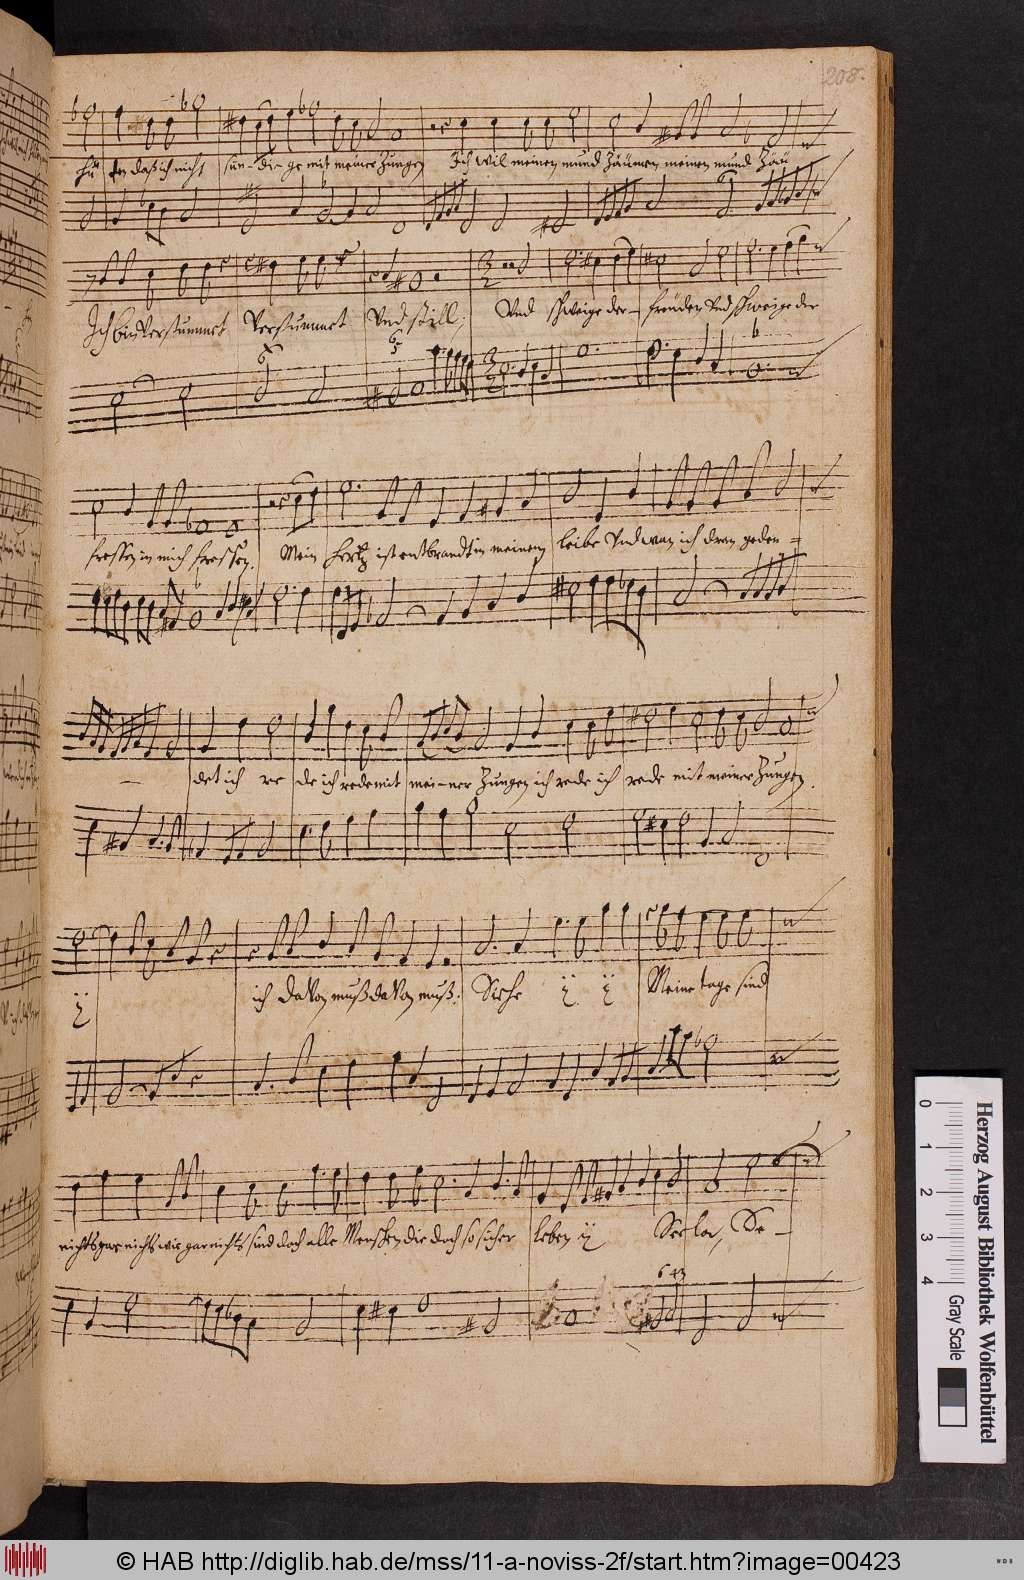 208.
hü ten daß ich nicht sün - di - ge mit meiner Zungen Ich wil meinen mund Zäumen meinen mund Zäu
Ich bin Verstummet Verstummet Vnd still, Vnd schweige der - freuden Vnd schweige der
6 6 5
fressen in mich fressen. Mein hertz ist entbrandt in meinem leibe Vnd wan ich dran geden =
- det ich re de ich rede mit mei - ner Zungen ich rede ich rede mit meiner Zungen.
ij ich davon muß davon muß. Siehe ij ij Meine tage sind
nichts gar nichts wie gar nichts sind doch alle Menschen die doch so sicher leben ij Sela, Se -
6 43
Herzog August Bibliothek Wolfenbüttel
0 1 2 3 4 Gray Scale
© HAB http://diglib.hab.de/mss/11-a-noviss-2f/start.htm?image=00423